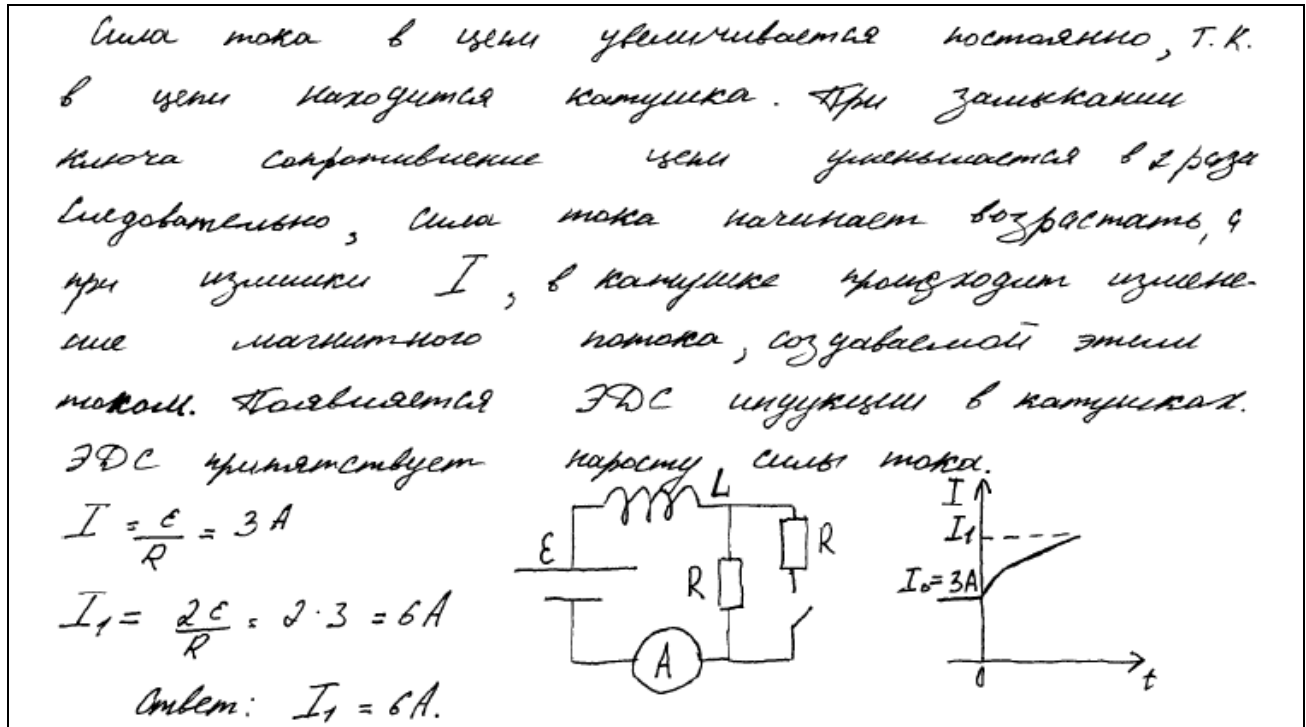 Сила тока в цепи увеличивается постоянно, т.к.
в цепи находится катушка. При замыкании
ключа сопротивление цепи уменьшается в 2 раза
Следовательно, сила тока начинает возрастать, а
при измники I, в катушке происходит измене-
ние магнитного потока, создаваемой этим
током. Появляется ЭДС индукции в катушках.
ЭДС припятствует наросту силы тока.
I = ε/R = 3 А
I₁ = 2ε/R = 2·3 = 6А
Ответ: I₁ = 6А.
L
ε
R
R
A
I
I₁
I₀=3А
0
t